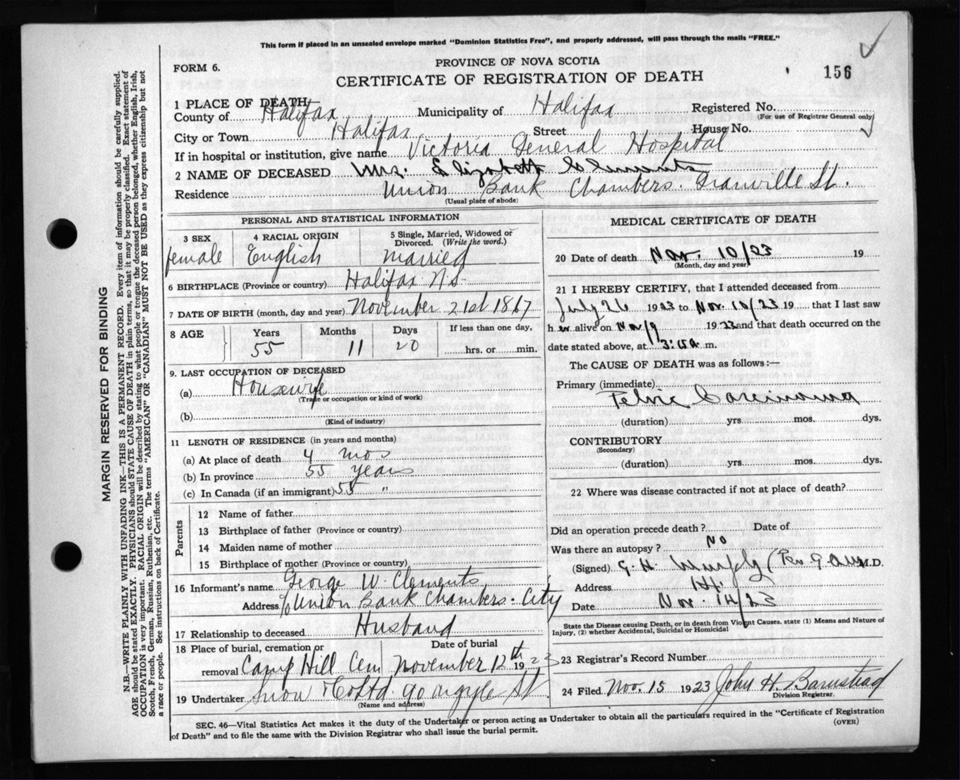 This form if placed in an unsealed envelope marked "Dominion Statistics Free", and properly addressed, will pass through the mails "FREE."
FORM 6.
PROVINCE OF NOVA SCOTIA
CERTIFICATE OF REGISTRATION OF DEATH
156
1 PLACE OF DEATH
County of Halifax Municipality of Halifax Registered No.
(For use of Registrar General only)
City or Town Halifax Street House No.
If in hospital or institution, give name Victoria General Hospital
2 NAME OF DECEASED Mrs. Elizabeth Clements
Residence Union Bank Chambers. Granville St.
(Usual place of abode)
PERSONAL AND STATISTICAL INFORMATION
3 SEX 4 RACIAL ORIGIN 5 Single, Married, Widowed or Divorced. (Write the word.)
female English married
6 BIRTHPLACE (Province or country) Halifax N.S
7 DATE OF BIRTH (month, day and year) November 21st 1867
8 AGE Years Months Days If less than one day,
55 11 20 hrs. or min.
9. LAST OCCUPATION OF DECEASED
(a) Housewife
(Trade or occupation or kind of work)
(b)
(Kind of industry)
11 LENGTH OF RESIDENCE (in years and months)
(a) At place of death 4 mos
(b) In province 55 years
(c) In Canada (if an immigrant) 55 "
Parents
12 Name of father
13 Birthplace of father (Province or country)
14 Maiden name of mother
15 Birthplace of mother (Province or country)
16 Informant's name George W. Clements
Address c/o Union Bank Chambers. City
17 Relationship to deceased Husband
18 Place of burial, cremation or removal Camp Hill Cem Date of burial November 12th 1923
19 Undertaker Snow & Co Ltd. 90 Argyle St
(Name and address)
MEDICAL CERTIFICATE OF DEATH
20 Date of death Nov. 10/23 19
(Month, day and year)
21 I HEREBY CERTIFY, that I attended deceased from
July 26 1923 to Nov. 10/23 19 that I last saw
her alive on Nov/9 1923 and that death occurred on the
date stated above, at 3:15 a m.
The CAUSE OF DEATH was as follows:—
Primary (immediate)
Pelvic Carcinoma
(duration) yrs mos. dys.
CONTRIBUTORY
(Secondary)
(duration) yrs. mos. dys.
22 Where was disease contracted if not at place of death?
Did an operation precede death? Date of
Was there an autopsy? No
(Signed) G. H. Murphy M.D.
Address Hfx.
Date Nov. 14/23
State the Disease causing Death, or in death from Violent Causes. state (1) Means and Nature of
Injury, (2) whether Accidental, Suicidal or Homicidal
23 Registrar's Record Number
24 Filed Nov. 15 1923 John H. Barnstead
Division Registrar.
SEC. 46—Vital Statistics Act makes it the duty of the Undertaker or person acting as Undertaker to obtain all the particulars required in the "Certificate of Registration
of Death" and to file the same with the Division Registrar who shall issue the burial permit.
(OVER)
MARGIN RESERVED FOR BINDING
N.B.—WRITE PLAINLY WITH UNFADING INK—THIS IS A PERMANENT RECORD. Every item of information should be carefully supplied.
AGE should be stated EXACTLY. PHYSICIANS should STATE CAUSE OF DEATH in plain terms, so that it may be properly classified. Exact statement of
OCCUPATION is very important. RACIAL ORIGIN will be described by stating to what people or tongue the deceased person belonged, whether English, Irish,
Scotch, French, German, Russian, Ruthenian, etc. The terms "AMERICAN" OR "CANADIAN" MUST NOT BE USED as they express citizenship but not
a race or people. See instructions on back of Certificate.